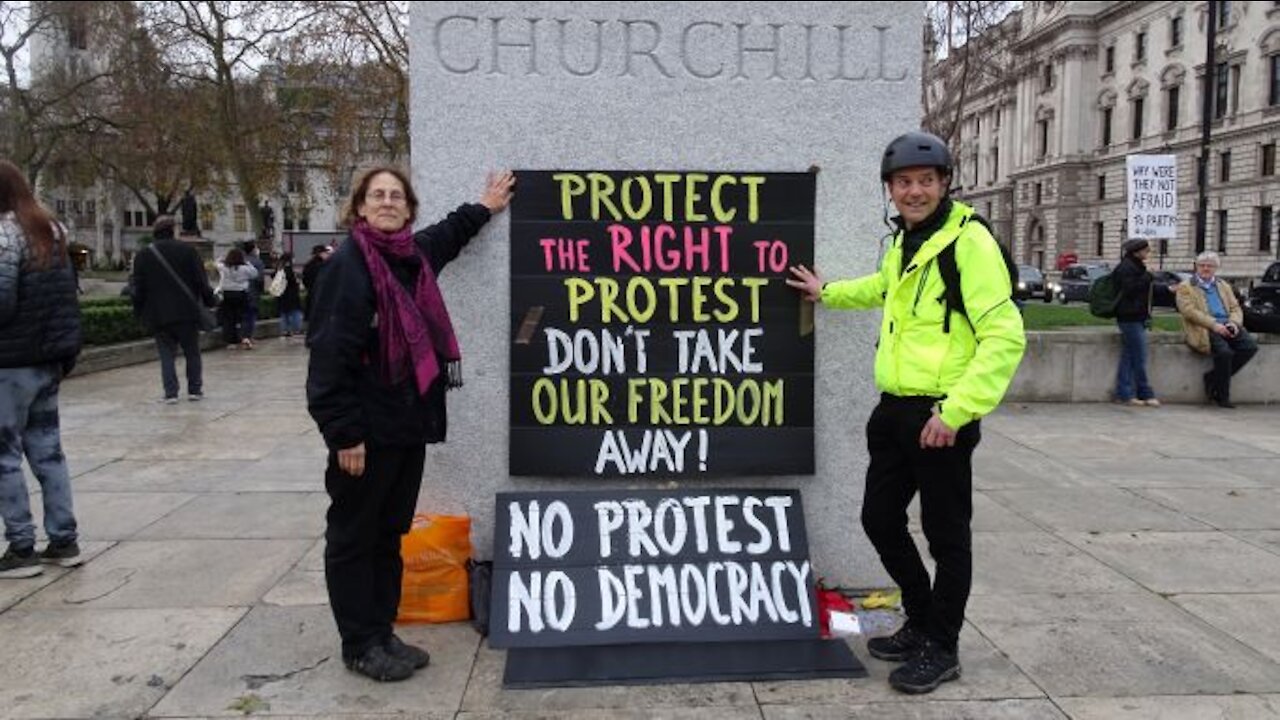 CHURCHILL
PROTECT
THE RIGHT TO
PROTEST
DON'T TAKE
OUR FREEDOM
AWAY!
NO PROTEST
NO DEMOCRACY
WHY WERE
THEY NOT
AFRAID
TO PARTY?